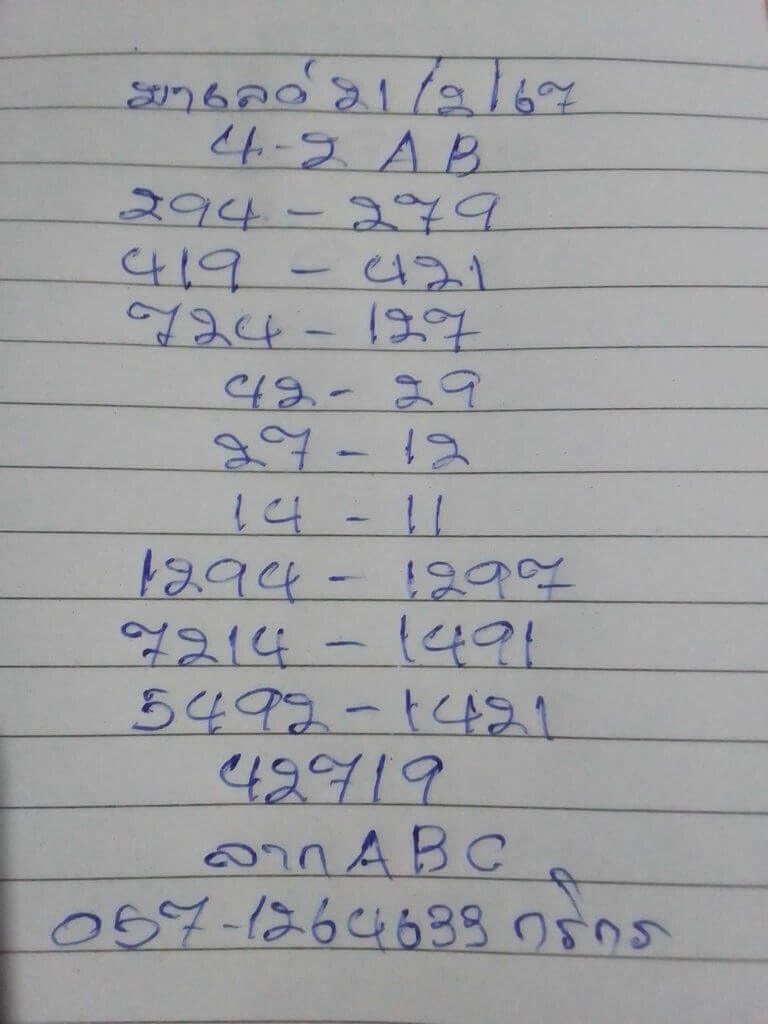 มาเลย์ 21/2/67
4-2 AB
294 - 279
419 - 421
724 - 127
42 - 29
27 - 12
14 - 11
1294 - 1297
7214 - 1491
5492 - 1421
42719
ลาก ABC
057-1264633 กสิกร